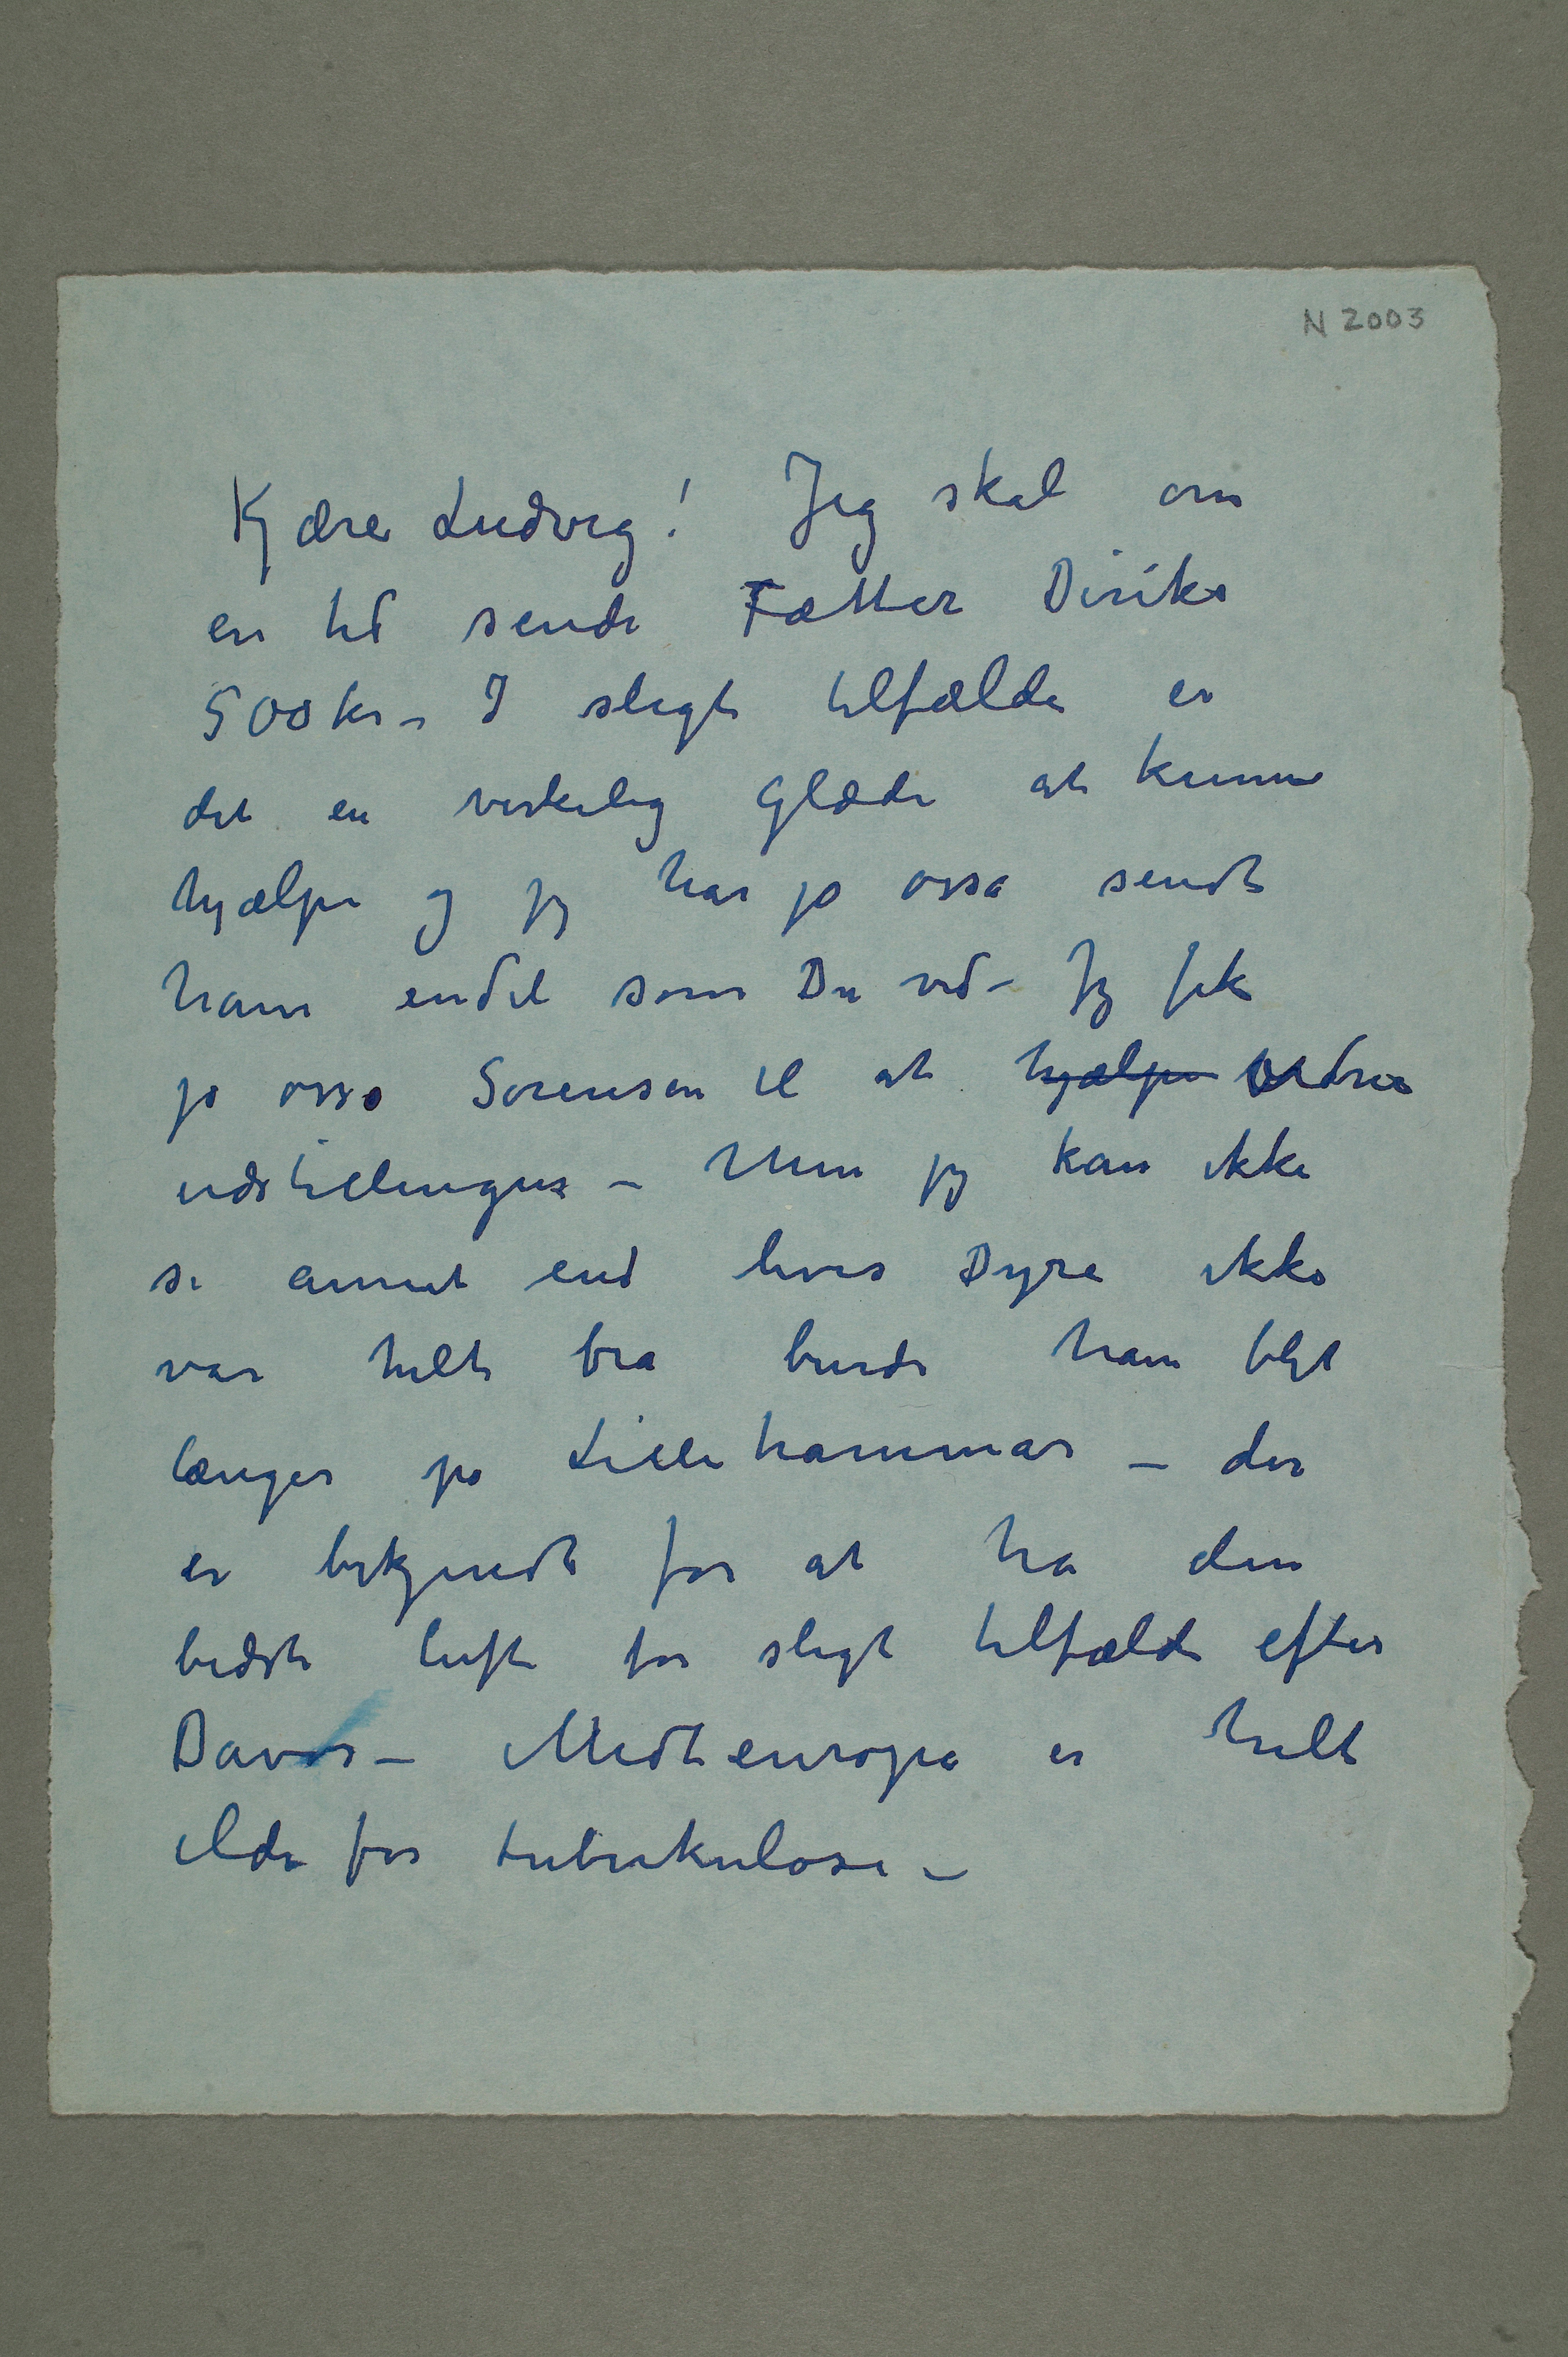 N 2003
Kjære Ludvig! Jeg skal om
en tid sende Fætter Diriks
500 kr – I sligt tilfælde er
det en virkelig Glæde at kunne
hjælpe og jeg har jo osså sendt
ham endel som Du ved – Jeg fik
jo osso Sørensen til at hjælpe ordne
udstillingen – Men jeg kan ikke
se annet end hvis Dyre ikke
var helt bra burde han blit
længer på Lillehammer – der
er bekjendt for at ha den
bedste luft for sligt tilfælde efter
Davos – Midteuropa er helt
ilde for tuberkulose –